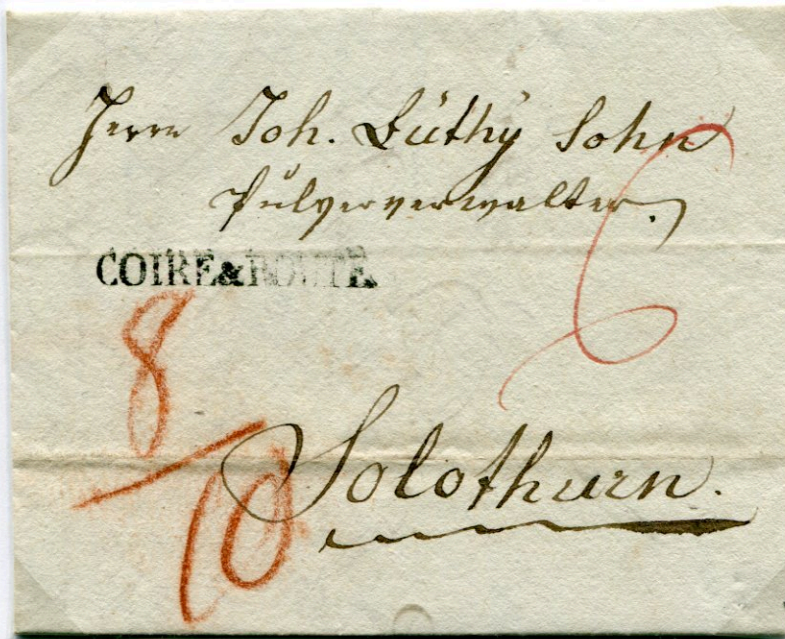 Herrn Joh. Lüthÿ Sohn
Pulververwalter.
COIRE&ROUTE
6
8
10
Solothurn.